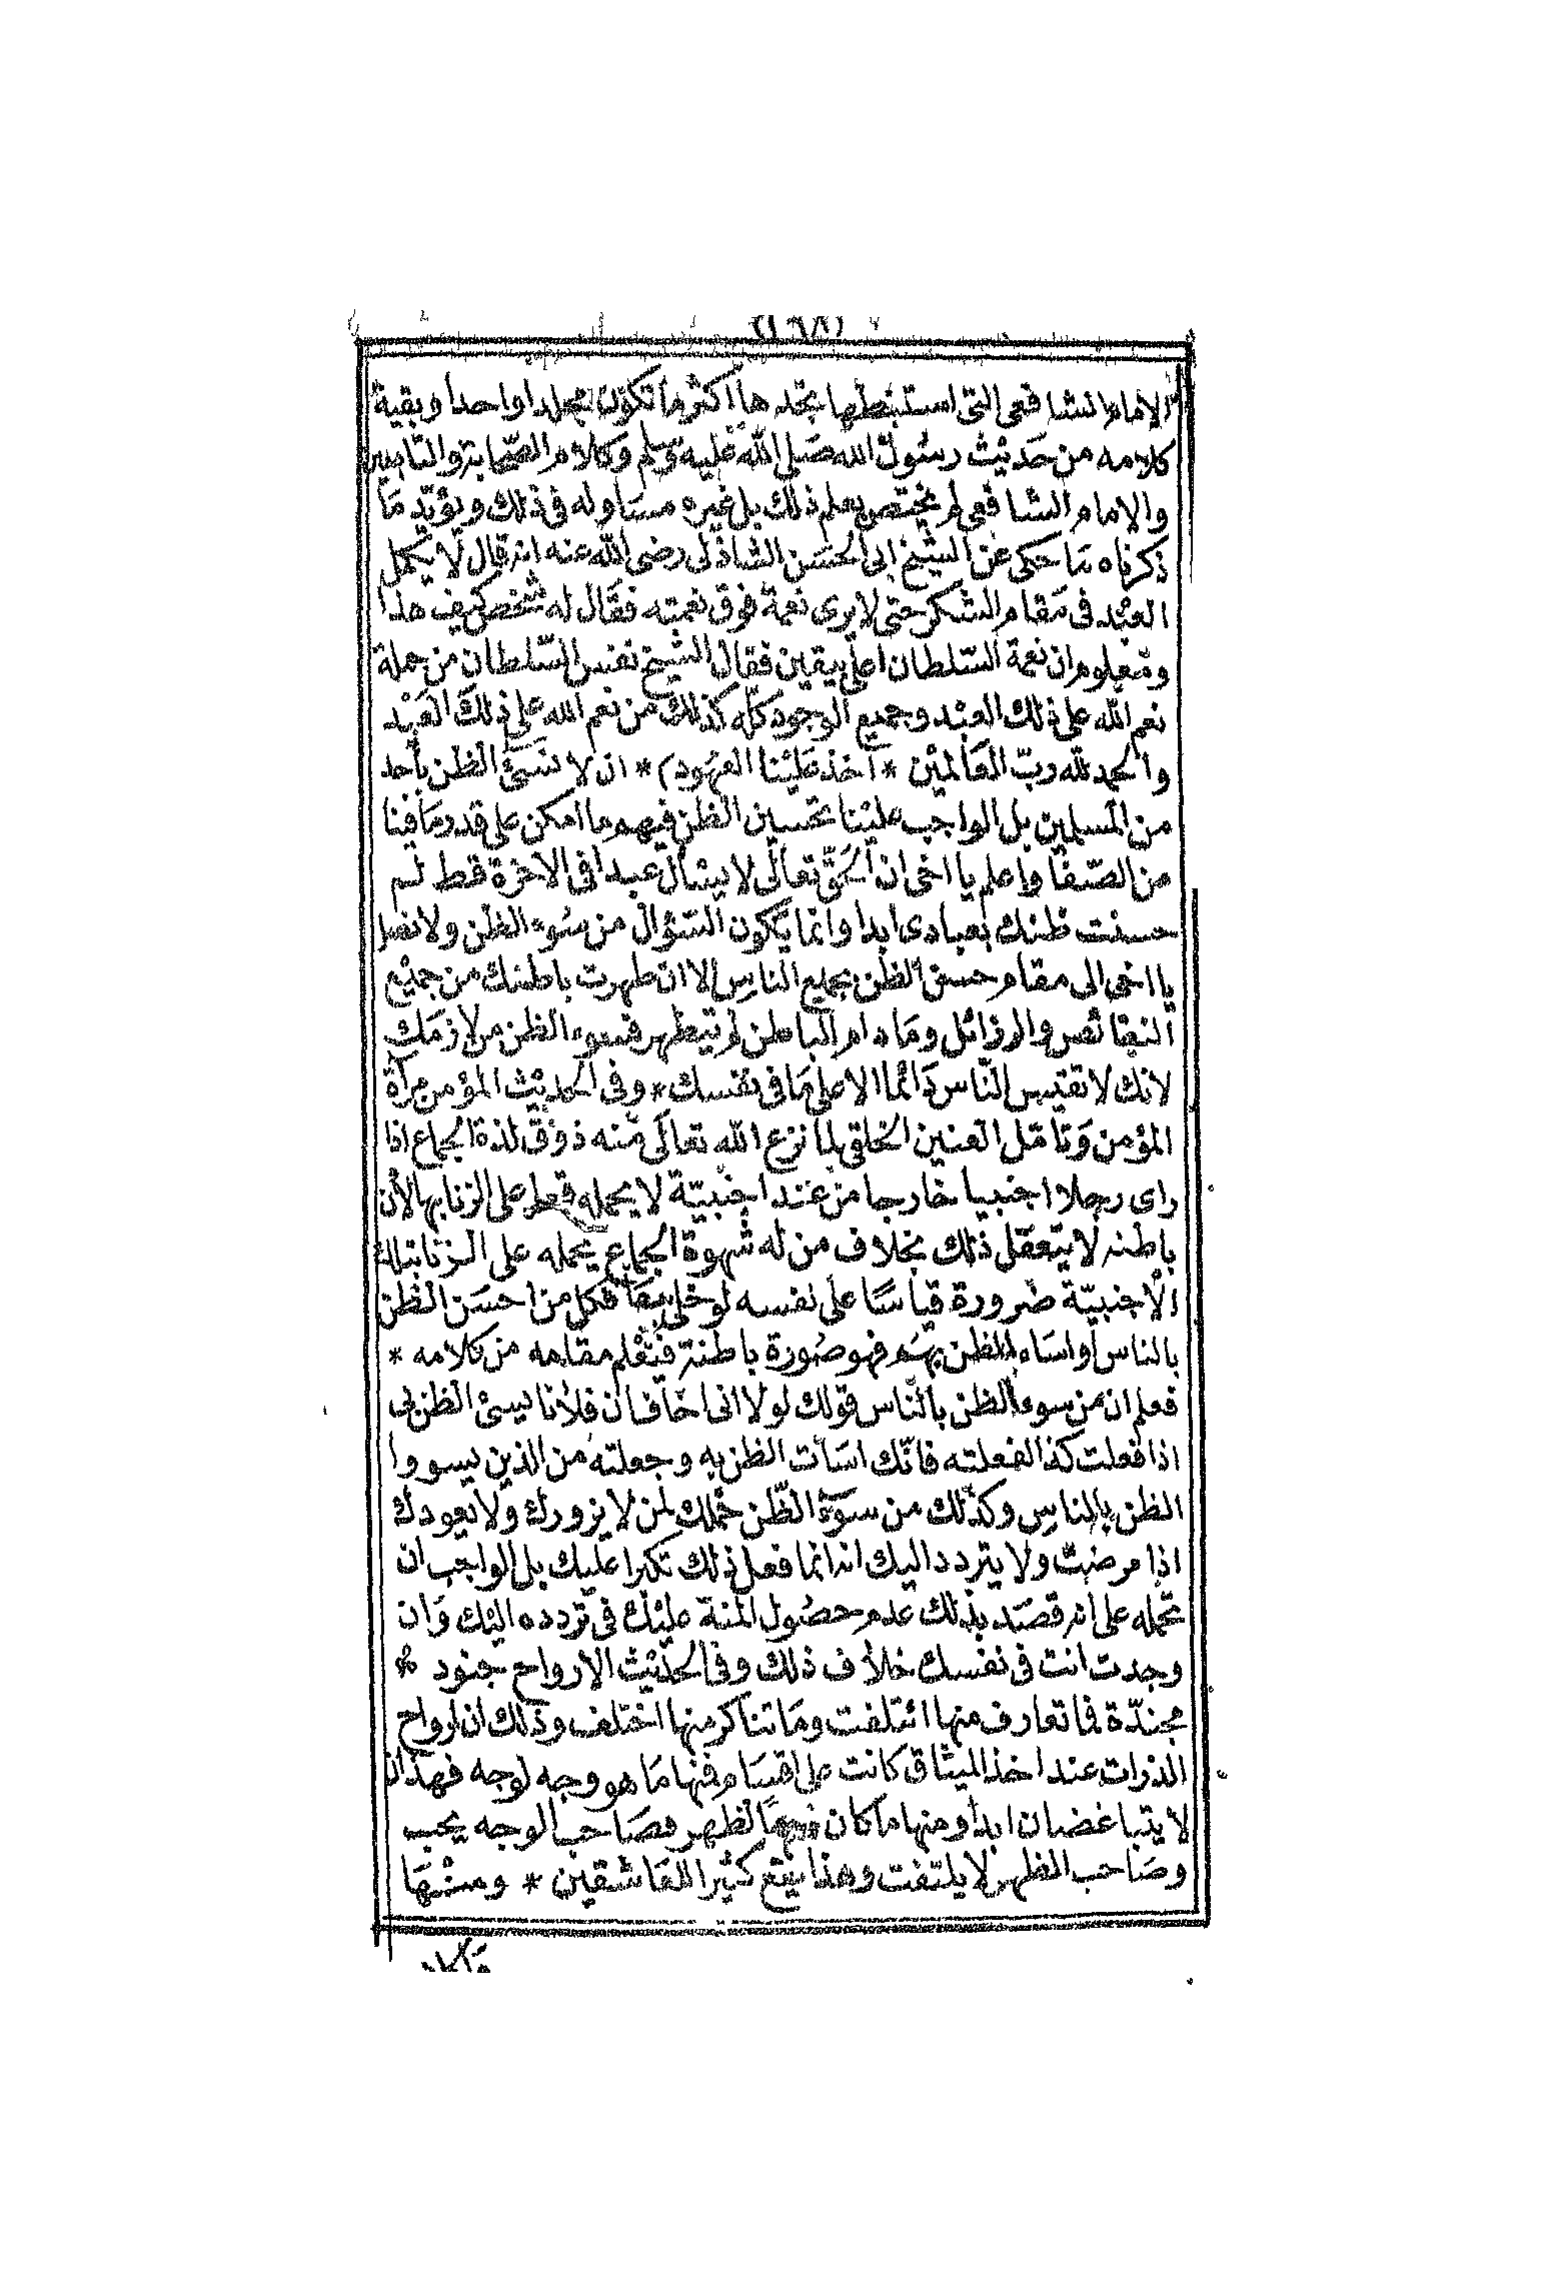 الامام الشافعى التى استنبطها تجدها اكثر ما تكون مجلدا واحدا وبقية
كلامه من حديث رسول الله صلى الله عليه وسلم وكلام الصحابة والتابعين
والامام الشافعى لم يختص بعلم ذلك بل غيره مساو له فى ذلك ويؤيد ما
ذكرناه ما حكى عن الشيخ ابى الحسن الشاذلى رضى الله عنه انه قال لا يكمل
العبد فى مقام الشكر حتى لا يرى نعمة فوق نعمته فقال له شخص كيف هذا
ومعلوم ان نعمة السلطان اعلى بيقين فقال الشيخ نفس السلطان من جملة
نعم الله على ذلك العبد وجميع الوجود كله كذلك من نعم الله على ذلك العبد
والحمد لله رب العالمين * (اخذ علينا العهود) * ان لا نسئ الظن باحد
من المسلمين بل الواجب علينا تحسين الظن فيهم ما امكن على قدر ما فينا
من الصفا واعلم يا اخى ان الحق تعالى لا يسأل عبدا فى الاخرة قط لم
حسنت ظنك بعبادى ابدا وانما يكون السؤال من سوء الظن ولا تصل
يا اخى الى مقام حسن الظن بجميع الناس الا ان طهرت باطنك من جميع
النقائص والرذائل وما دام الباطن لم يتطهر فسوء الظن من لازمك
لانك لا تقيس الناس دائما الا على ما فى نفسك * وفى الحديث المؤمن مرآة
المؤمن وتامل العنين الخلقى لما نزع الله تعالى منه ذوق لذة الجماع اذا
راى رجلا اجنبيا خارجا من عند اجنبية لا يحمله قط على الزنا بها لأن
باطنه لا يتعقل ذلك بخلاف من له شهوة الجماع يحمله على الزنا بتلك
الاجنبية ضرورة قياسا على نفسه لو خلى بها فكل من احسن الظن
بالناس او اساء الظن بهم فهو صورة باطنة فتعلم مقامه من كلامه *
فعلم ان من سوء الظن بالناس قولك لولا انى اخاف ان فلانا يسئ الظن بى
اذا فعلت كذا لفعلته فانك اسأت الظن به وجعلته من الذين يسووا
الظن بالناس وكذلك من سوء الظن حملك لمن لا يزورك ولا يعودك
اذا مرضت ولا يتردد اليك انه انما فعل ذلك تكبرا عليك بل الواجب ان
تحمله على انه قصد بذلك عدم حصول المنة عليك فى تردده اليك وان
وجدت انت فى نفسك خلاف ذلك وفى الحديث الارواح جنود *
مجندة فما تعارف منها ائتلفت وما تناكر منها اختلف وذلك ان ارواح
الذرات عند اخذ الميثاق كانت على اقسام فمنها ما هو وجه لوجه فهذان
لا يتباغضان ابدا ومنها ما كان لظهر فصاحب الوجه يحب
وصاحب الظهر لا يلتفت وهذا يقع كثيرا للعاشقين * ومنها